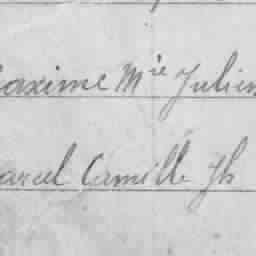 axime Mie Julien
arcel Camille Jh